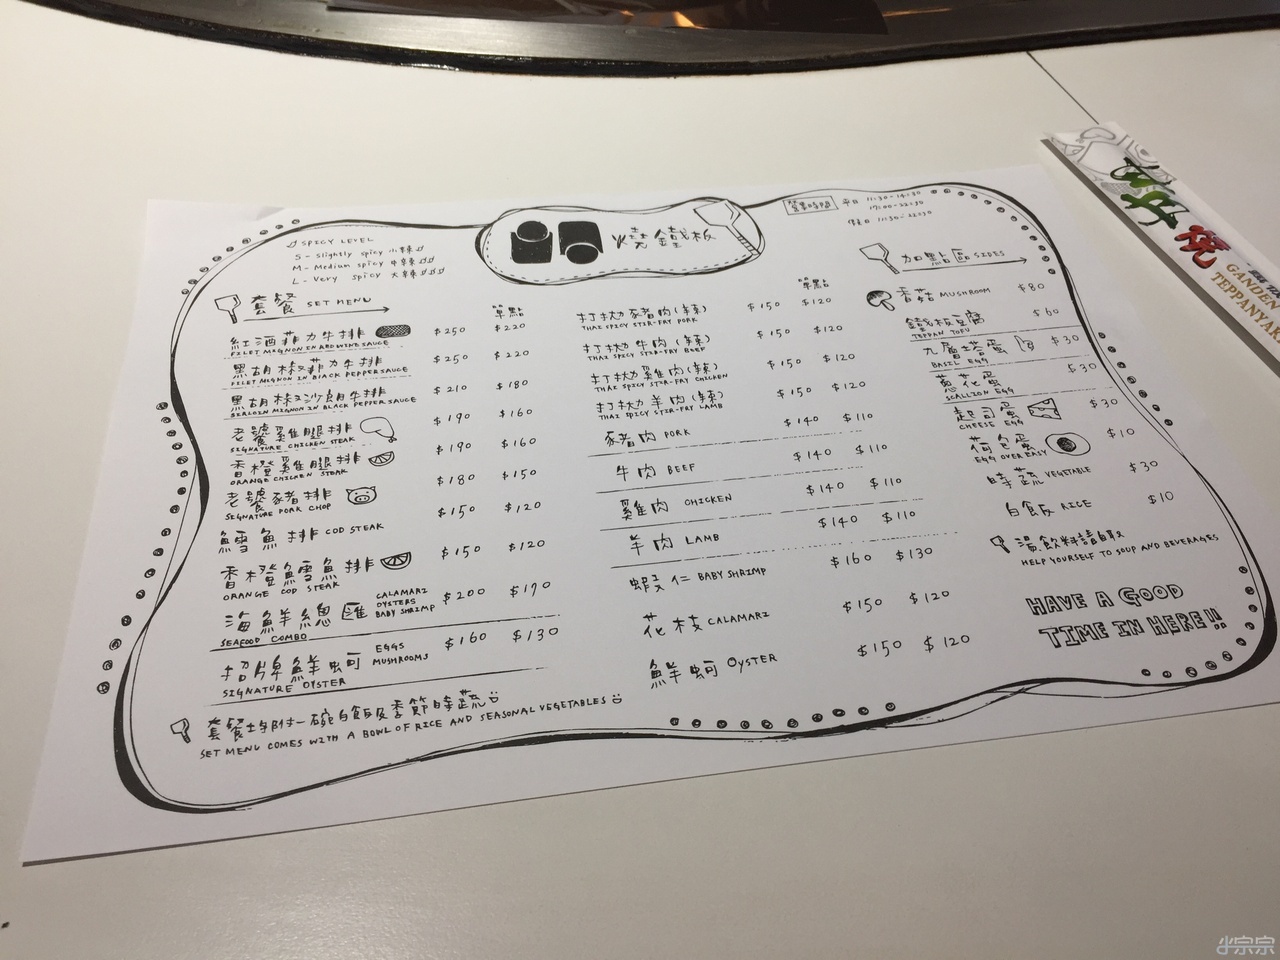 SPICY LEVEL
S - Slightly spicy 小辣
M - Medium spicy 中辣
L - Very spicy 大辣
燒鐵板
營業時間 平日 11:30-14:30
17:00-22:30
休日 11:30-22:30
套餐 SET MENU
單點
紅酒菲力牛排 $250 $220
FILET MIGNON IN RED WINE SAUCE
黑胡椒菲力牛排 $250 $220
FILET MIGNON IN BLACK PEPPER SAUCE
黑胡椒沙朗牛排 $210 $180
SERLOIN MIGNON IN BLACK PEPPER SAUCE
老饕雞腿排 $190 $160
SIGNATURE CHICKEN STEAK
香橙雞腿排 $190 $160
ORANGE CHICKEN STEAK
老饕豬排 $180 $150
SIGNATURE PORK CHOP
鱈魚排 COD STEAK $150 $120
香橙鱈魚排 $150 $120
ORANGE COD STEAK
海鮮總匯 CALAMARI OYSTERS BABY SHRIMP $200 $170
SEAFOOD COMBO
招牌鮮蚵 EGGS MUSHROOMS $160 $130
SIGNATURE OYSTER
套餐均附一碗白飯及季節時蔬
SET MENU COMES WITH A BOWL OF RICE AND SEASONAL VEGETABLES
單點
打拋豬肉(辣) $150 $120
THAI SPICY STIR-FRY PORK
打拋牛肉(辣) $150 $120
THAI SPICY STIR-FRY BEEF
打拋雞肉(辣) $150 $120
THAI SPICY STIR-FRY CHICKEN
打拋羊肉(辣) $150 $120
THAI SPICY STIR-FRY LAMB
豬肉 PORK $140 $110
牛肉 BEEF $140 $110
雞肉 CHICKEN $140 $110
羊肉 LAMB $140 $110
蝦仁 BABY SHRIMP $160 $130
花枝 CALAMARI $150 $120
鮮蚵 OYSTER $150 $120
加點區 SIDES
香菇 MUSHROOM $80
鐵板豆腐 $60
TEPPAN TOFU
九層塔蛋 $30
BASIL EGG
蔥花蛋 $30
SCALLION EGG
起司蛋 $30
CHEESE EGG
荷包蛋 $10
EGG OVER EASY
時蔬 VEGETABLE $30
白飯 RICE $10
湯飲料請自取
HELP YOURSELF TO SOUP AND BEVERAGES
HAVE A GOOD
TIME IN HERE!!
燒
TEPPANYAKI
小宗宗